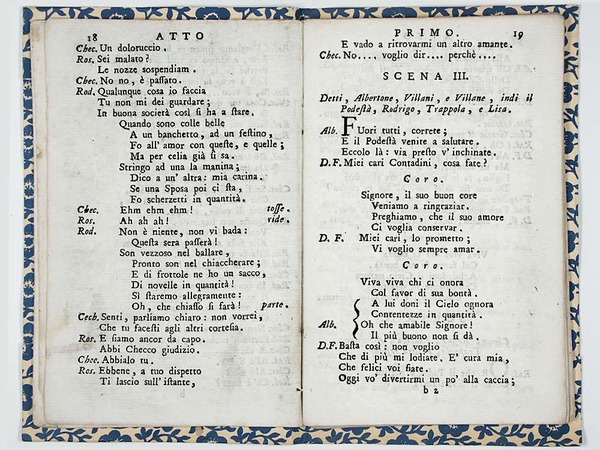 18 ATTO
Chec. Un doloruccio.
Ros. Sei malato?
Le nozze sospendiam.
Chec. No no, è passato.
Rod. Qualunque cosa io faccia
Tu non mi dei guardare;
In buona società così si ha a stare.
Quando sono colle belle
A un banchetto, ad un festino,
Fo all' amor con queste, e quelle;
Ma per celia già si sa.
Stringo ad una la manina;
Dico a un' altra: mia carina.
Se una Sposa poi ci sta,
Fo scherzetti in quantità.
Chec. Ehm ehm ehm! tosse.
Ros. Ah ah ah! ride.
Rod. Non è niente, non vi bada:
Questa sera passerà!
Son vezzoso nel ballare,
Pronto son nel chiaccherare;
E di frottole ne ho un sacco,
Di novelle in quantità!
Sì staremo allegramente:
Oh, che chiasso si farà! parte.
Cech. Senti, parliamo chiaro: non vorrei,
Che tu facesti agli altri cortesia.
Ros. E siamo ancor da capo.
Abbi Checco giudizio.
Chec. Abbialo tu.
Ros. Ebbene, a tuo dispetto
Ti lascio sull' istante,
b
PRIMO. 19
E vado a ritrovarmi un altro amante.
Chec. No.... voglio dir.... perchè....
SCENA III.
Detti, Albertone, Villani, e Villane, indi il
Podestà, Rodrigo, Trappola, e Lisa.
Alb. FUori tutti, correte;
E il Podestà venite a salutare.
Eccolo là: via presto v' inchinate.
D. F. Miei cari Contadini, cosa fate?
Coro.
Signore, il suo buon core
Veniamo a ringraziar.
Preghiamo, che il suo amore
Ci voglia conservar.
D. F. Miei cari, lo prometto;
Vi voglio sempre amar.
Coro.
Viva viva chi ci onora
Col favor di sua bontà.
A lui doni il Cielo ognora
Contentezze in quantità.
Alb. Oh che amabile Signore!
Il più buono non si dà.
D. F. Basta così: non voglio
Che di più mi lodiate. E' cura mia,
Che felici voi siate.
Oggi vo' divertirmi un po' alla caccia;
b 2